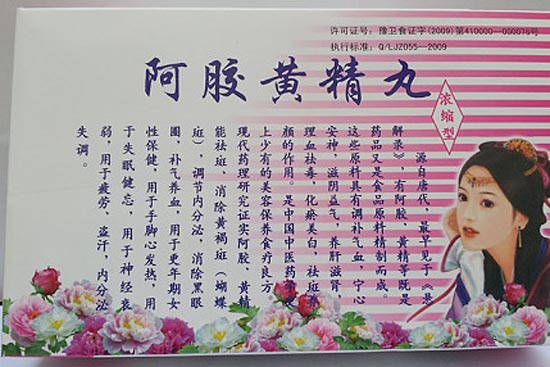 许可证号：豫卫食证字(2009)第410000—000076号
执行标准：Q/LJZ055—2009
阿胶黄精丸
浓缩型
源自唐代，最早见于《景
解录》，有阿胶、黄精等既是
药品又是食品原料精制而成。
这些原料具有调补气血，宁心
安神，滋阴益气，养肝滋肾，
理血祛毒，化瘀美白，祛斑养
颜的作用。是中国中医药
上少有的美容保养食疗良方。
现代药理研究证实阿胶、黄精
能祛斑，消除黄褐斑（蝴蝶
斑），调节内分泌，消除黑眼
圈，补气养血，用于更年期女
性保健，用于手脚心发热，用
于失眠健忘，用于神经衰
弱，用于疲劳、盗汗，内分泌
失调。